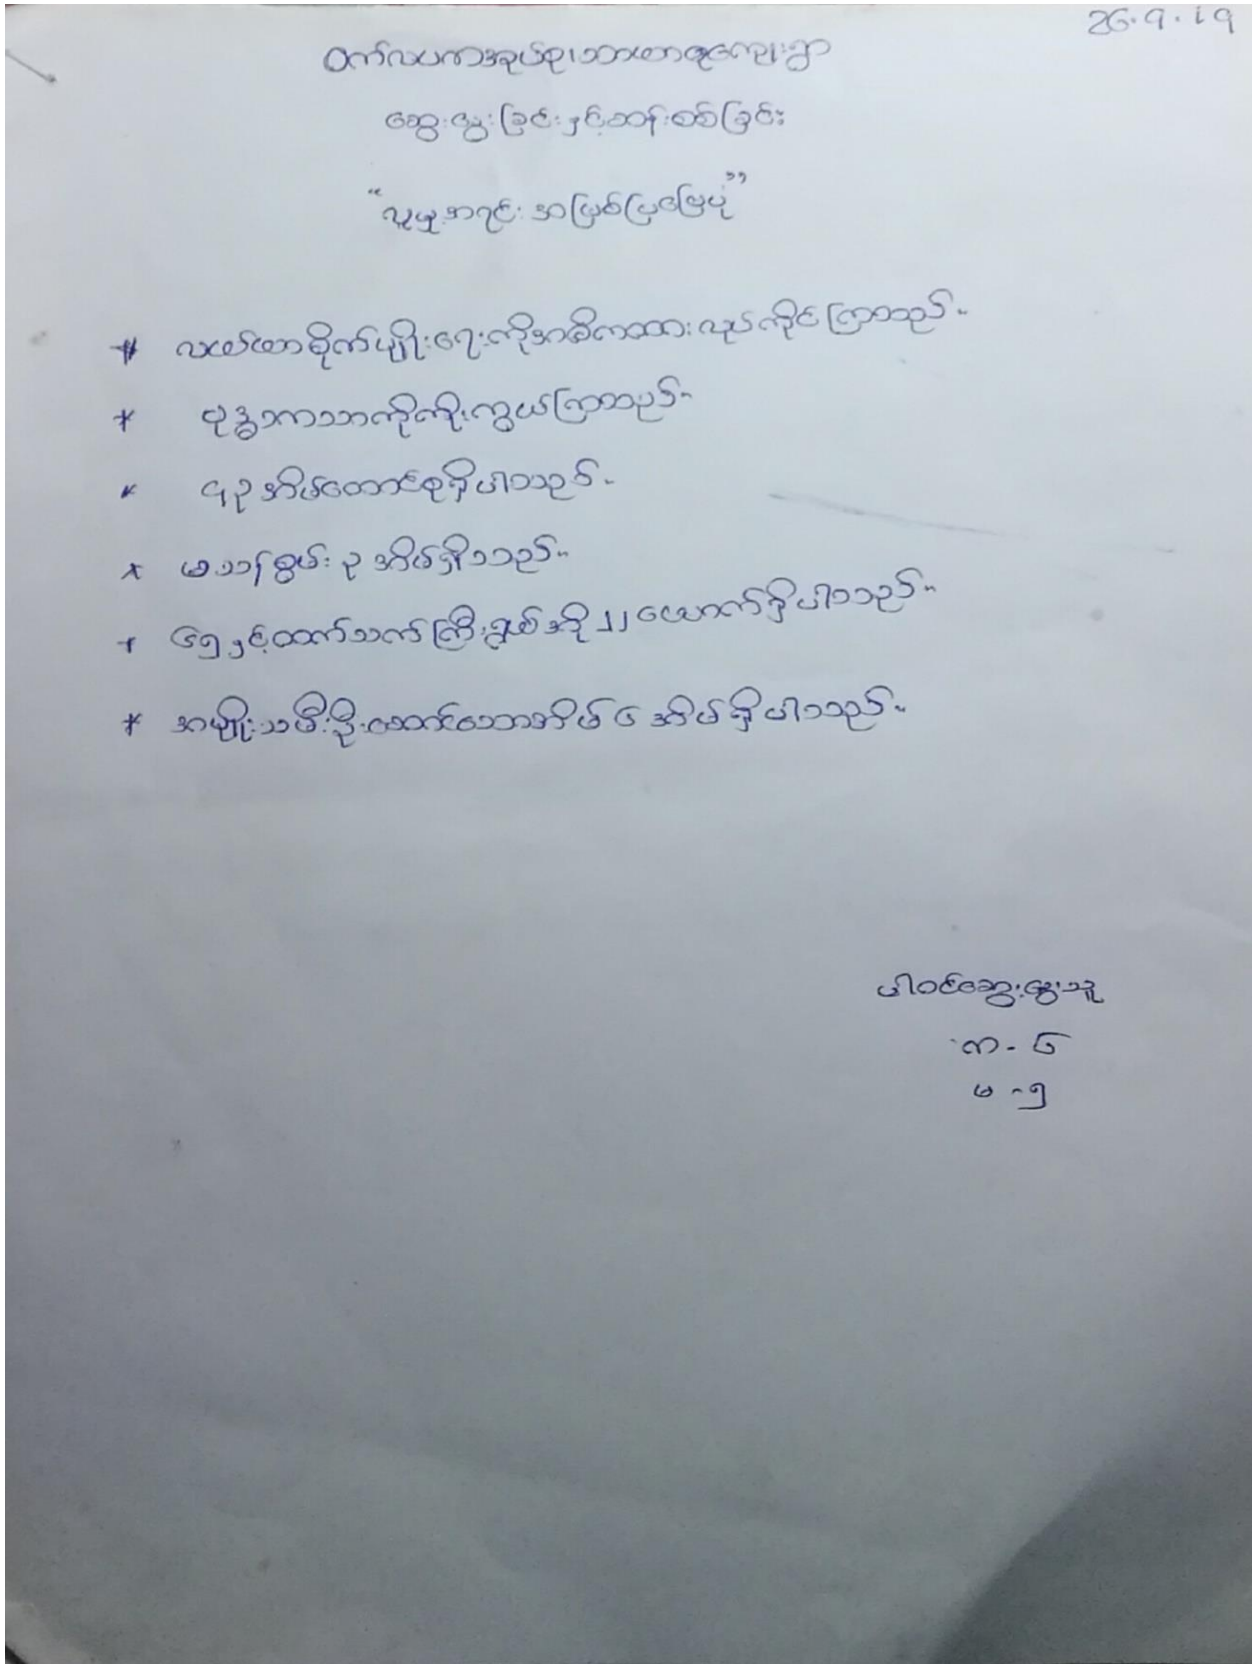 26.9.19
ဝက်လပကအုပ်စု၊သာယာကုကျေးရွာ
ဆွေးနွေးခြင်းနှင့်ဆန်းစစ်ခြင်း
"လူမှုအရင်း အမြစ်ပြမြေပုံ"
* လယ်ယာစိုက်ပျိုးရေးကိုအဓိကထားလုပ်ကိုင်ကြသည်။
* ဗုဒ္ဓဘာသာကိုကိုးကွယ်ကြသည်။
* ၄၃ အိမ်ထောင်စုရှိပါသည်။
* မသန်စွမ်း ၃ အိမ်ရှိသည်။
* ၆၅ နှင့်အထက်သက်ကြီးရွယ်အို ၂၂ ယောက်ရှိပါသည်။
* အမျိုးသမီးဦးဆောင်သောအိမ် ၆ အိမ်ရှိပါသည်။
ပါဝင်ဆွေးနွေးသူ
ကျား - ၆
မ - ၅